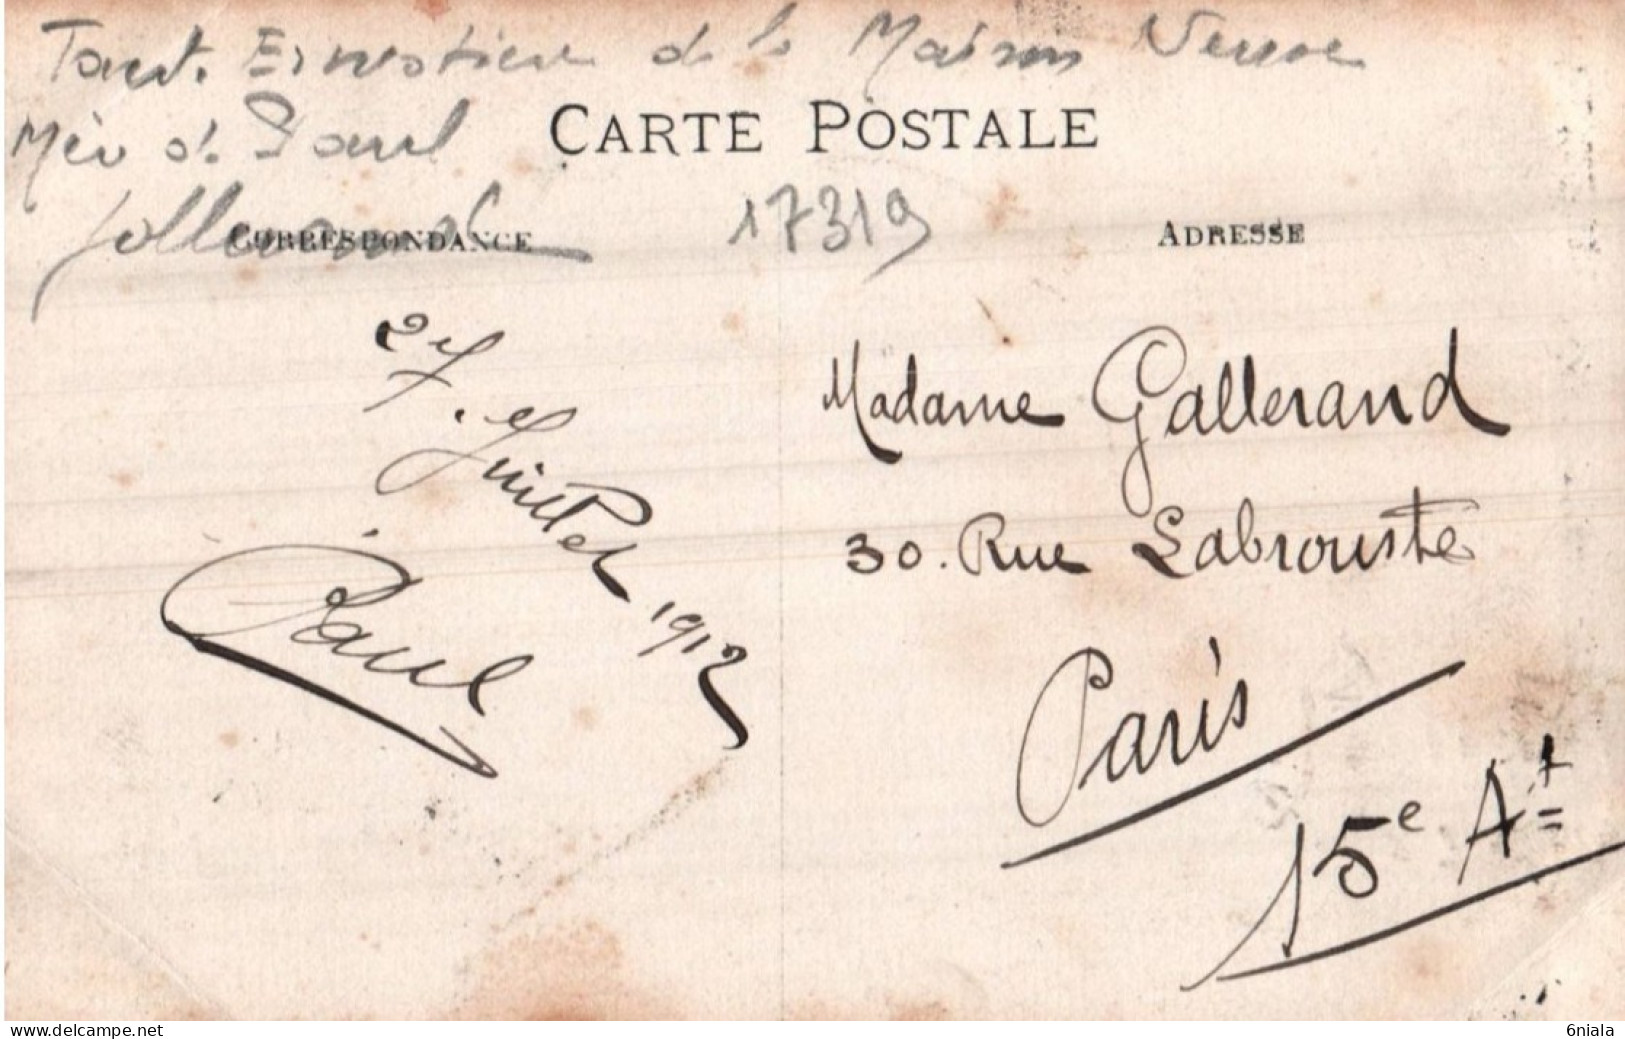 Tant. Ernestine de la Maison Neuve
CARTE POSTALE
Mère d. Paul
17319
CORRESPONDANCE
ADRESSE
27. Juillet 1912
Paul
Madame Gallerand
30. Rue Labrouste
Paris
15e At
www.delcampe.net
6niala